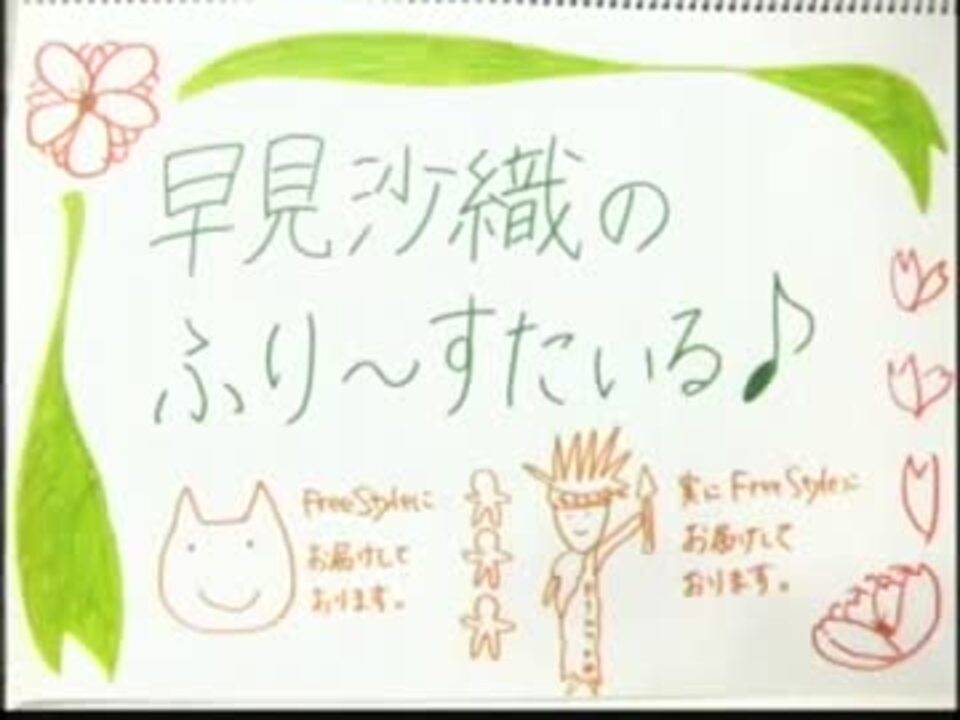 早見沙織の
ふり～すたいる♪
FreeStyleに
お届けして
おります。
実にFreeStyleに
お届けして
おります。